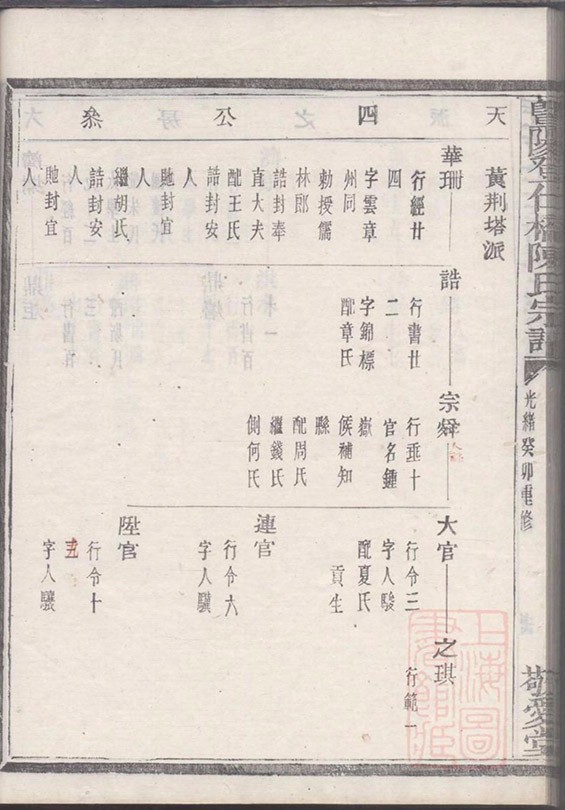 暨陽登仁橋陳氏宗譜
光緒癸卯重修
敬愛堂
天四公叅
黃荆塔派
華珊
行經廿
四
字雲章
州同
勅授儒
林郎
誥封奉
直大夫
配王氏
誥封安
人
貤封宜
人
繼胡氏
誥封安
人
貤封宜
人
誥
行書廿
二
字錦標
配章氏
宗舜
行垂十
官名鍾
嶽
候補知
縣
配周氏
繼錢氏
側何氏
大官
行令三
字人駿
配夏氏
貢生
之琪
行範一
連官
行令六
字人驥
陞官
行令十
五
字人驤